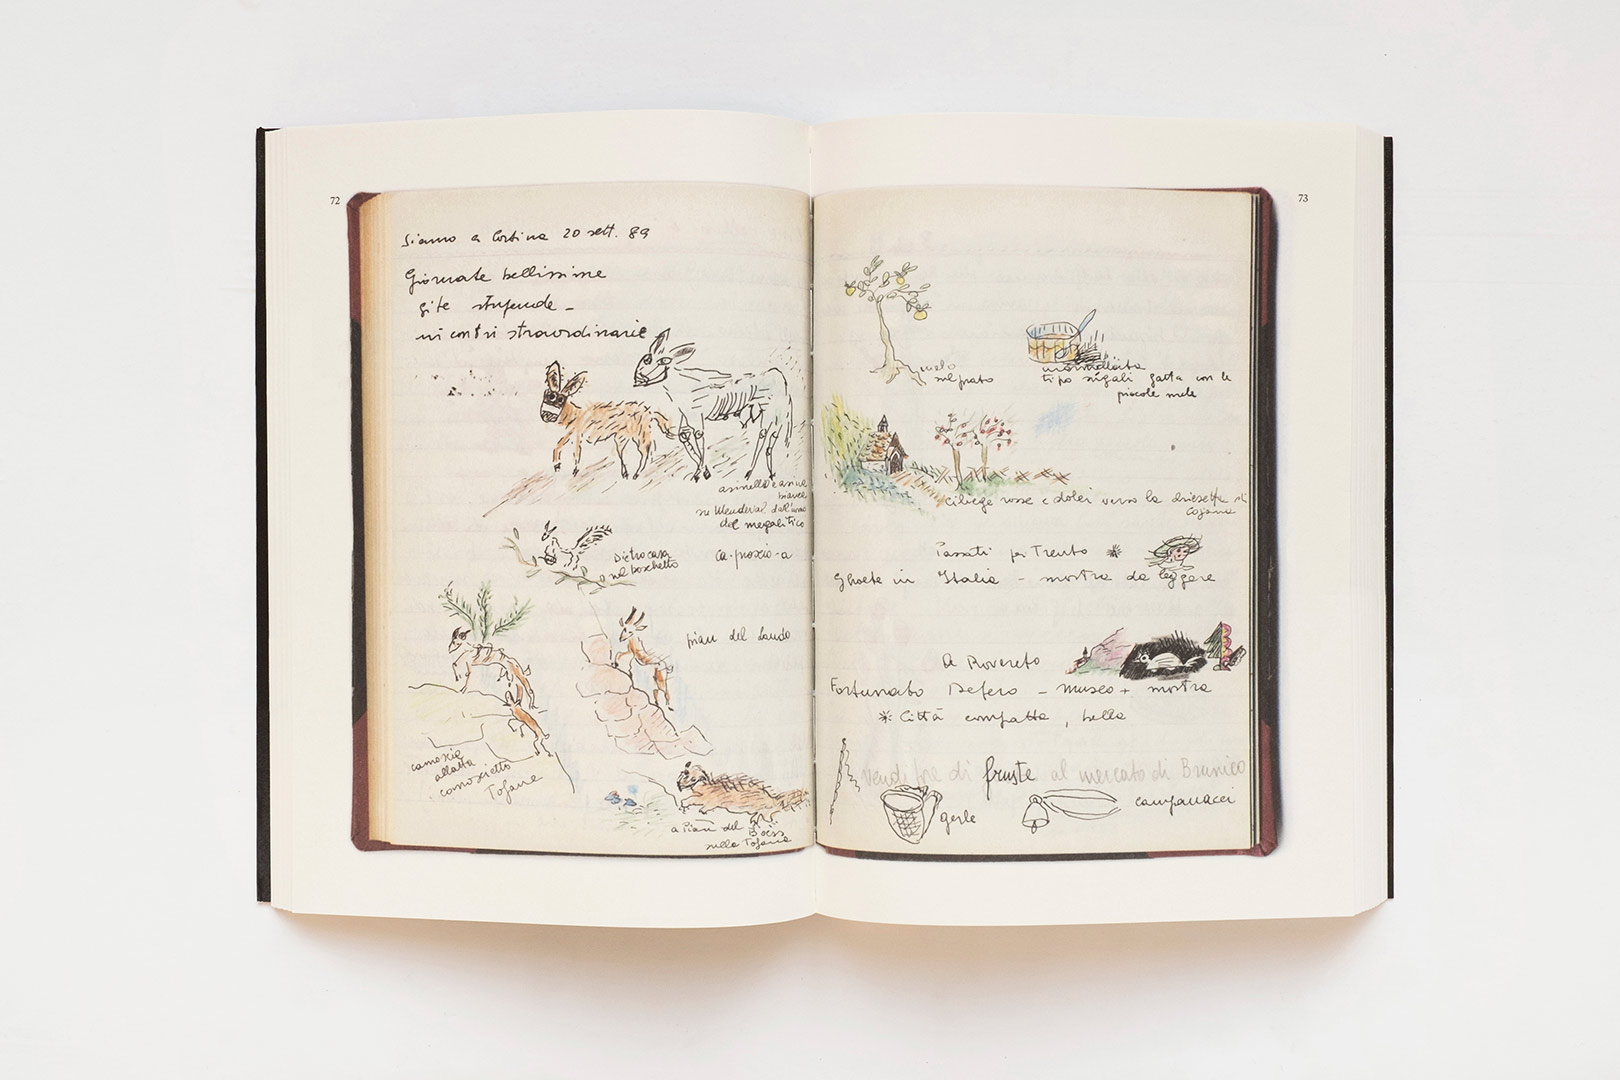 72
Siamo a Cortina 20 sett. 89
Giornate bellissime
gite stupende -
incontri straordinarie
asinello e asina
bianca
del megalitico
Dietro casa
nel boschetto
ca-poscio-a
pian del Laudo
camoscio
allatta
camoscietto
Tofane
a Pian del
sulla Tofana
73
melo
sul prato
marmellata
tipo sigali fatta con le
piccole mele
ciliege rosse e dolci verso la chiesetta di
Cojana
Passati per Trento
Ghoete in Italia - mostra da leggere
A Rovereto
Fortunato Depero - museo + mostra
Città compatta, bella
venditore di fruste al mercato di Brunico
gerle
campanacci